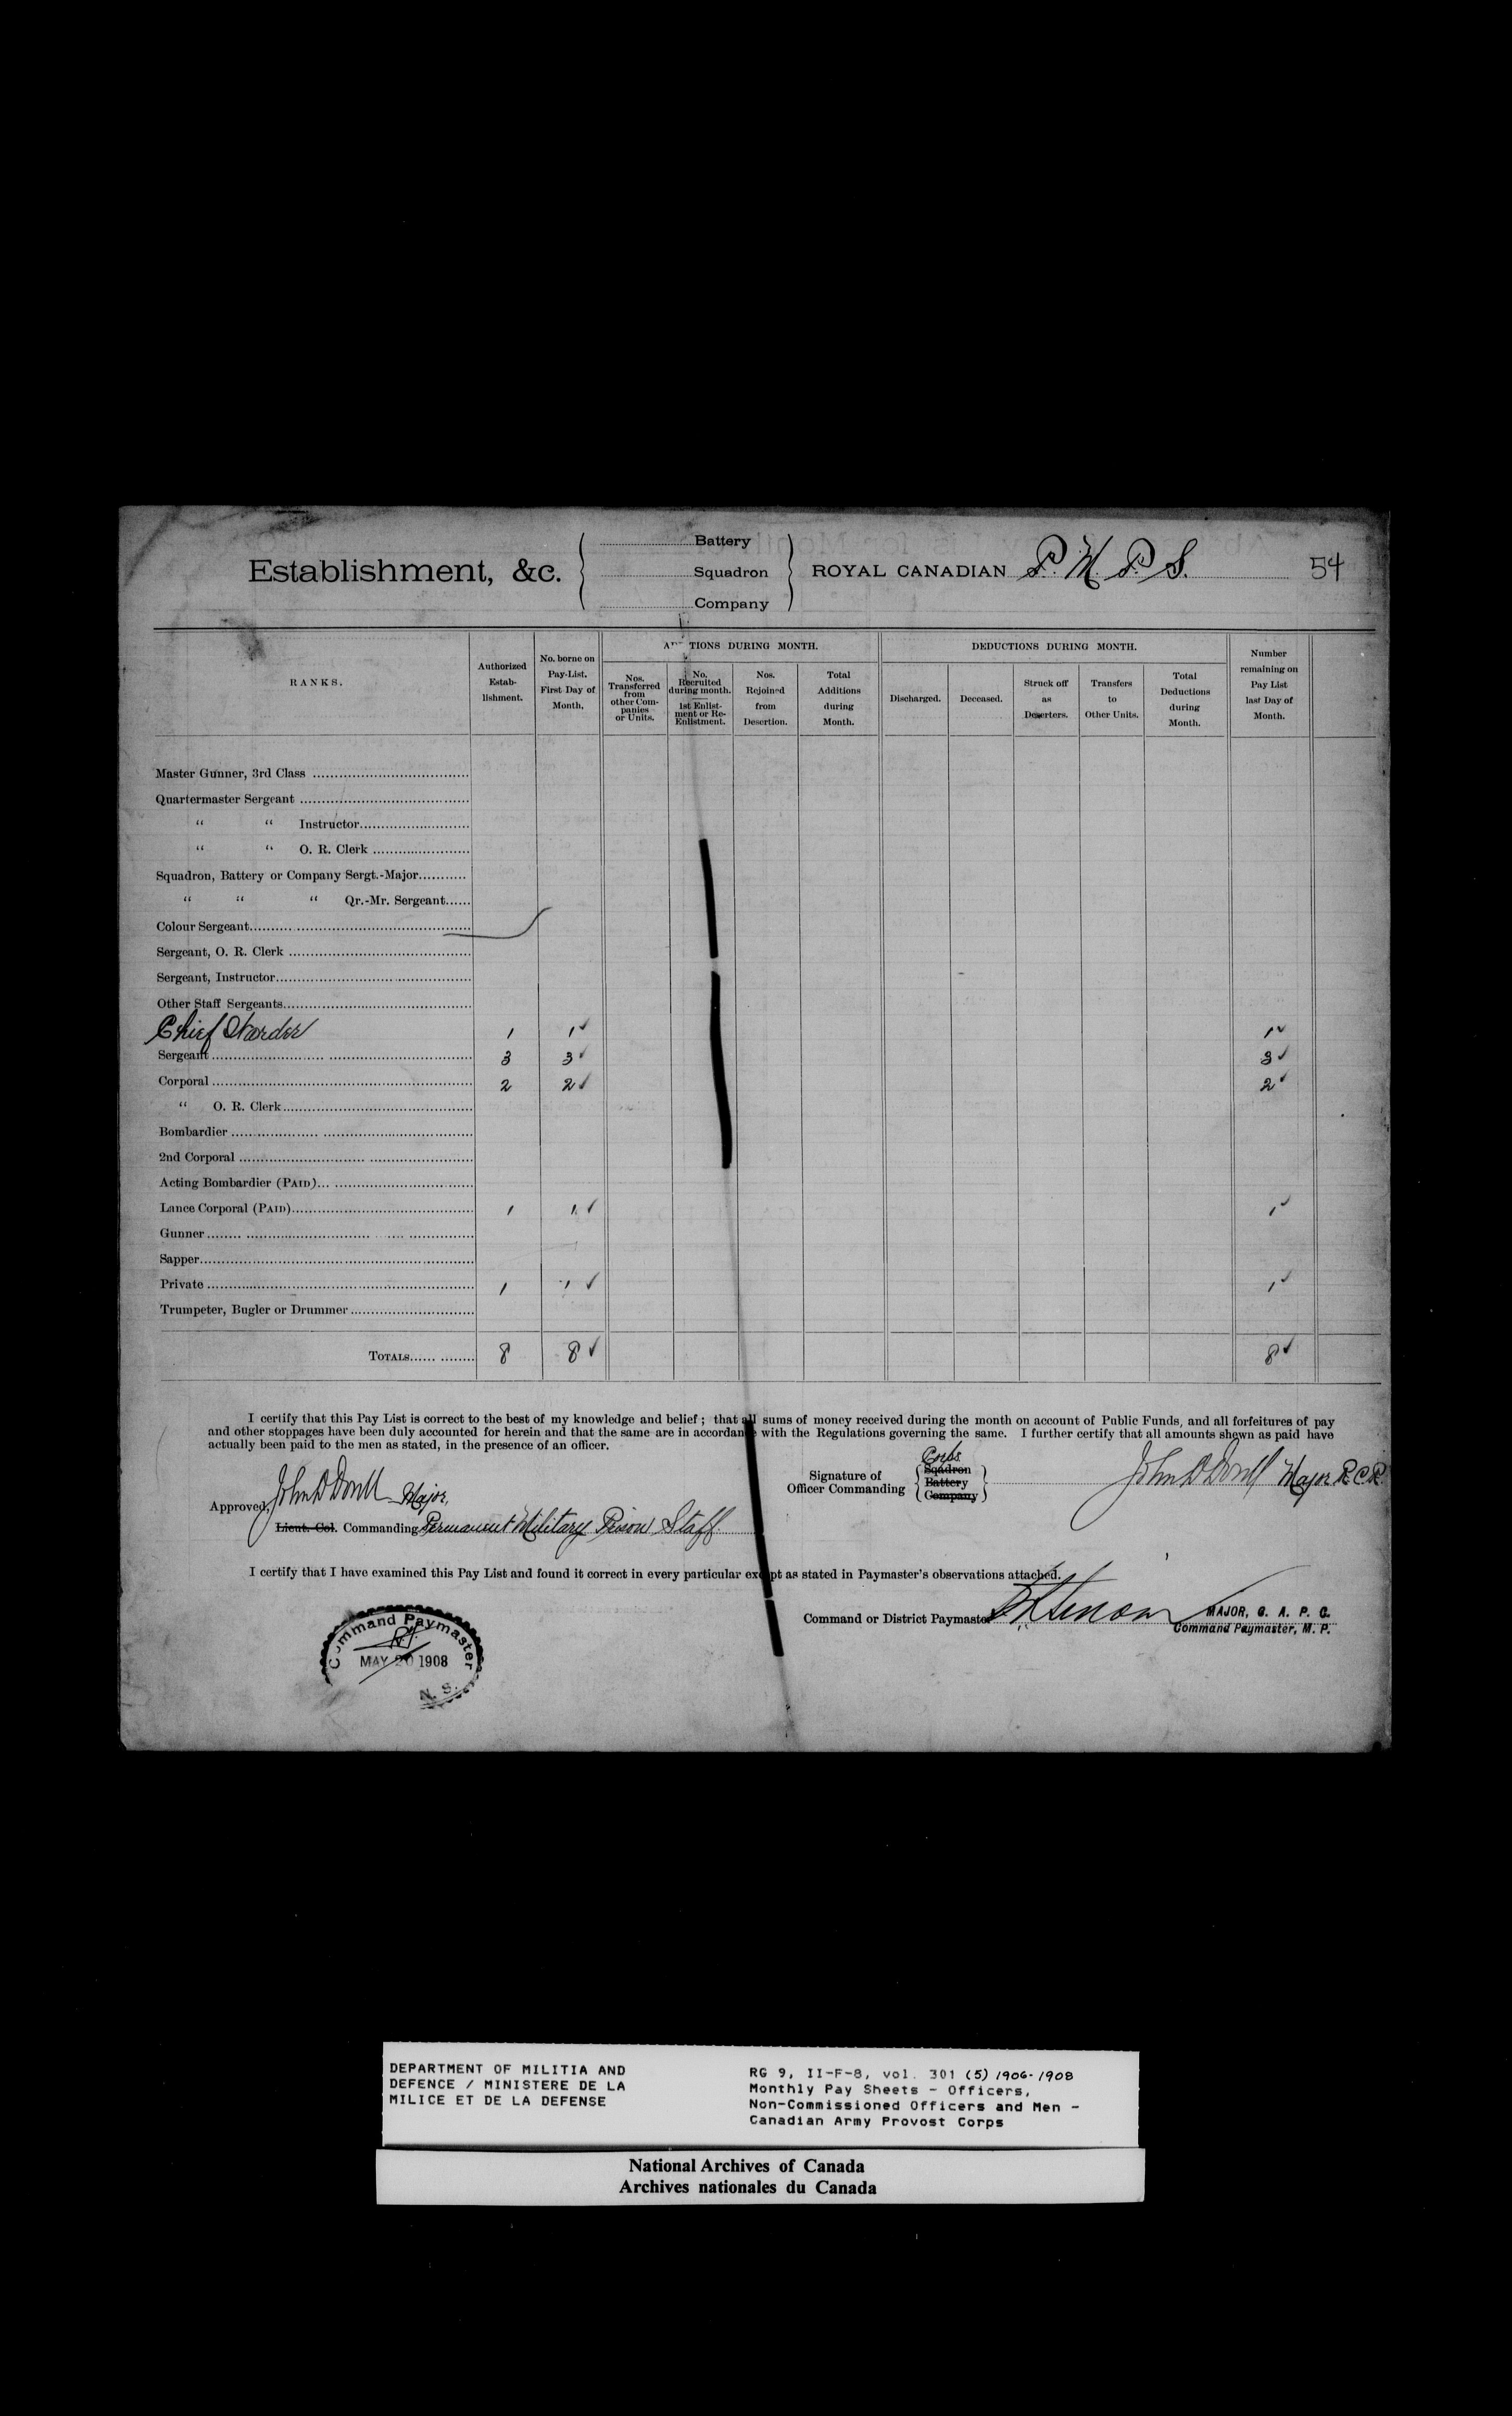 Battery
Establishment, &c. Squadron ROYAL CANADIAN P. M. P. S. 54
Company
RANKS.
Authorized Estab-lishment.
No. borne on Pay-List. First Day of Month.
ADDITIONS DURING MONTH.
Nos. Transferred from other Com-panies or Units.
No. Recruited during month. 1st Enlist-ment or Re-Enlistment.
Nos. Rejoined from Desertion.
Total Additions during Month.
DEDUCTIONS DURING MONTH.
Discharged.
Deceased.
Struck off as Deserters.
Transfers to Other Units.
Total Deductions during Month.
Number remaining on Pay List last Day of Month.
Master Gunner, 3rd Class
Quartermaster Sergeant
“ “ Instructor
“ “ O. R. Clerk
Squadron, Battery or Company Sergt.-Major
“ “ “ Qr.-Mr. Sergeant
Colour Sergeant
Sergeant, O. R. Clerk
Sergeant, Instructor
Other Staff Sergeants
Chief Warder 1 1✓ 1✓
Sergeant 3 3✓ 3✓
Corporal 2 2✓ 2✓
“ O. R. Clerk
Bombardier
2nd Corporal
Acting Bombardier (PAID)
Lance Corporal (PAID) 1 1✓ 1✓
Gunner
Sapper
Private 1 1✓ 1✓
Trumpeter, Bugler or Drummer
TOTALS 8 8✓ 8✓
I certify that this Pay List is correct to the best of my knowledge and belief; that all sums of money received during the month on account of Public Funds, and all forfeitures of pay
and other stoppages have been duly accounted for herein and that the same are in accordance with the Regulations governing the same. I further certify that all amounts shewn as paid have
actually been paid to the men as stated, in the presence of an officer.
Corps
Signature of Officer Commanding Sqadron Battery Company Major R.C.R.
Approved, Major,
Lieut. Col. Commanding Permanent Military Prison Staff
I certify that I have examined this Pay List and found it correct in every particular except as stated in Paymaster's observations attached.
Command or District Paymaster MAJOR, C. A. P. C.
Command Paymaster, M. P.
Command Paymaster
MAY 20 1908
N. S.
DEPARTMENT OF MILITIA AND
DEFENCE / MINISTERE DE LA
MILICE ET DE LA DEFENSE
RG 9, II-F-8, vol. 301 (5) 1906-1908
Monthly Pay Sheets - Officers,
Non-Commissioned Officers and Men -
Canadian Army Provost Corps
National Archives of Canada
Archives nationales du Canada